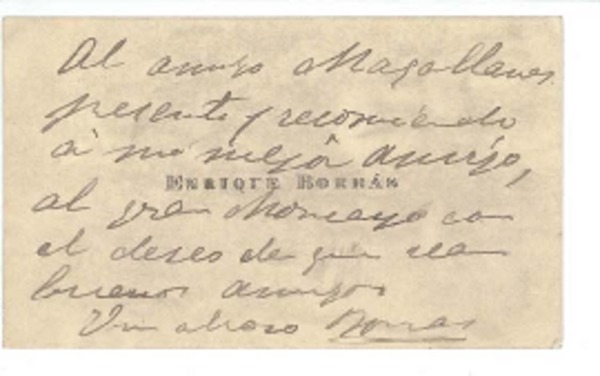 Al amigo Magallanes
presento y recomiendo
á mi mejor amigo,
ENRIQUE BORRÁS
al gran Moncayo con
el deseo de que sean
buenos amigos
Un abrazo Borras